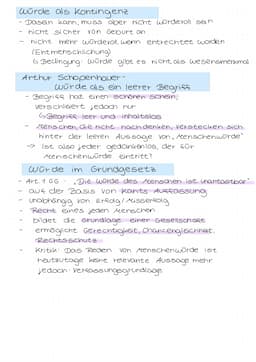 Würde als Kontingenz
- Dasein kann, muss aber nicht würdevoll sein
- nicht sicher von Geburt an
- nicht mehr würdevoll wenn entrechtet worden
(Entmenschlichung)
↳ Bedingung: Würde gibt es nicht als Wesensmerkmal
Arthur Schopenhauer-
Würde als ein leerer Begriff
- Begriff hat einen schönen Schein,
verschleiert jedoch nur
↳ Begriff leer und inhaltslos
- Menschen, die nicht nachdenken, verstecken sich
hinter der leeren Aussage von „Menschenwürde"
→ Ist also jeder gedankenlos, der für
Menschenwürde eintritt?
Würde im Grundgesetz
- Art. 1 GG: „Die Würde des Menschen ist unantastbar"
- auf der Basis von Kants Auffassung
- unabhängig von Erfolg/Misserfolg
- Recht eines jeden Menschen
- bildet die Grundlage einer Gesellschaft
- ermöglicht Gerechtigkeit, Chancengleichheit,
Rechtsschutz
- Kritik: Das Reden von Menschenwürde ist
heutzutage keine relevante Aussage mehr,
jedoch: Verfassungsgrundlage